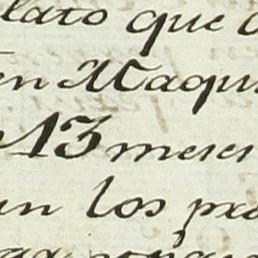 lato que
en Maqui
13 meses
en los pre